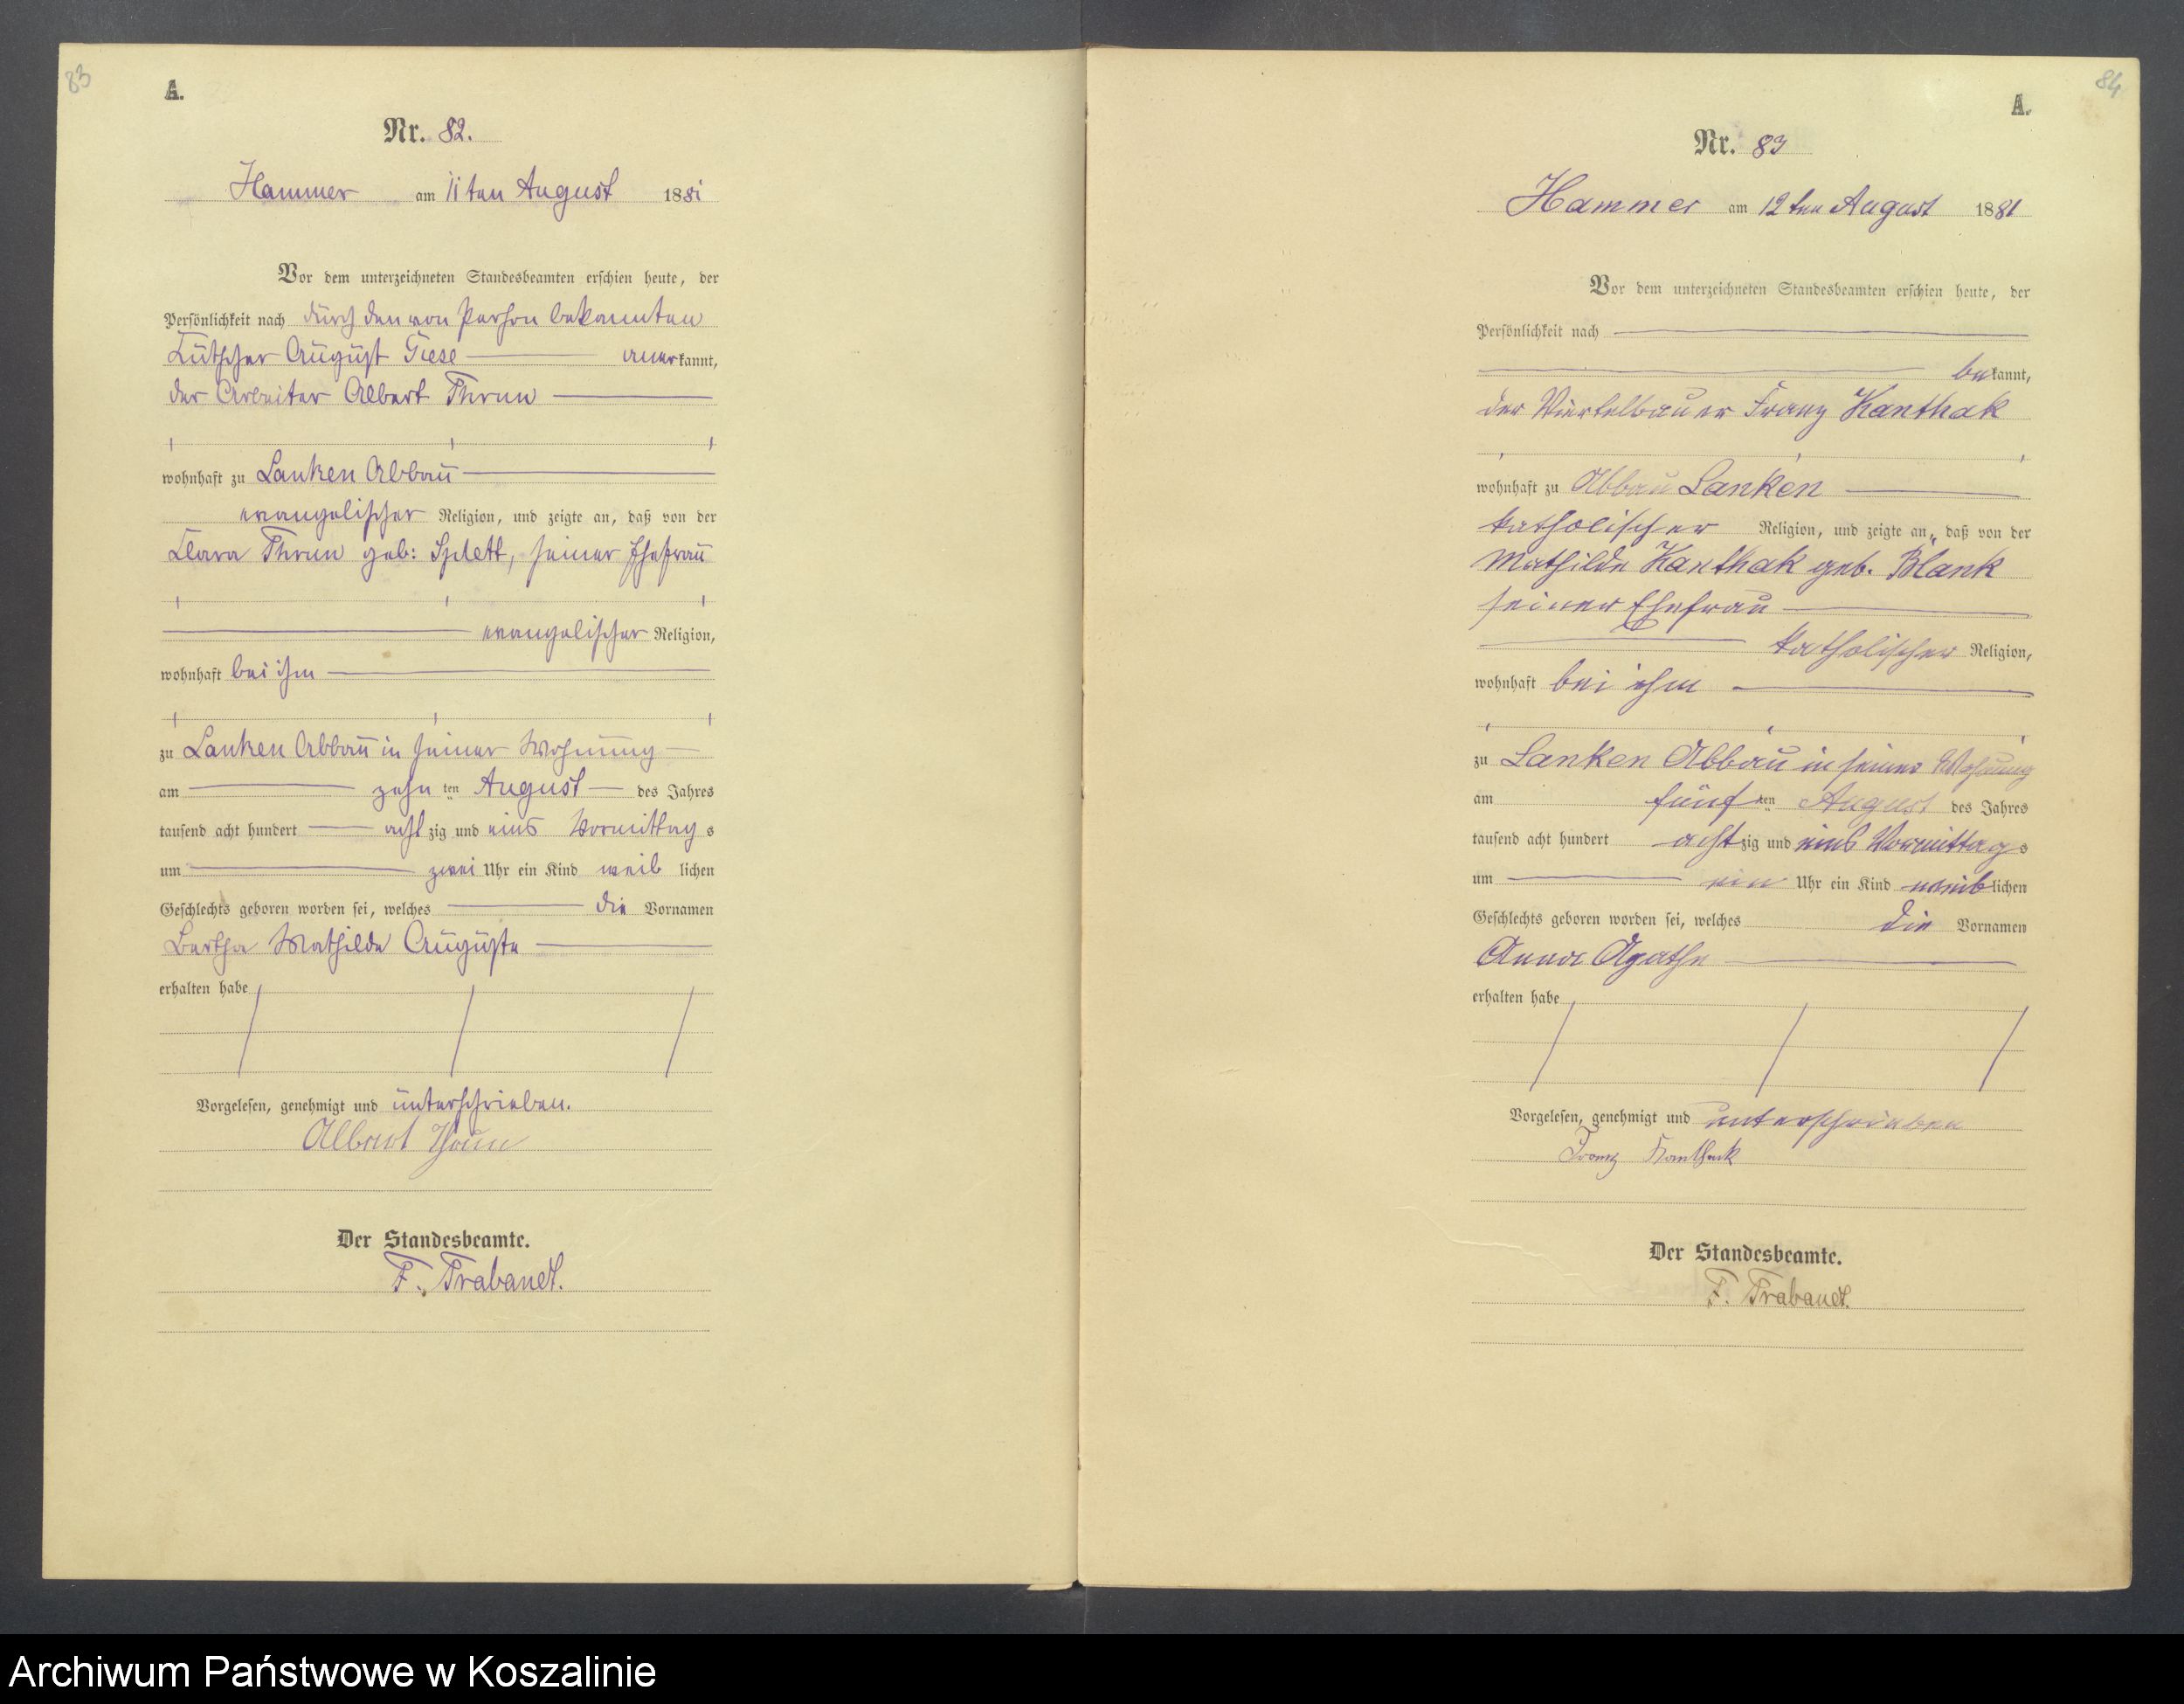 83
A.
Nr. 82.
Hammer am 11ten August 1881
Vor dem unterzeichneten Standesbeamten erschien heute, der
Persönlichkeit nach durch den von Person bekannten
August Tiese anerkannt,
der Arbeiter Albert Thrun
wohnhaft zu Lanken Abbau
evangelischer Religion, und zeigte an, daß von der
Clara Thrun geb: Splett, seiner Ehefrau
evangelischer Religion,
wohnhaft bei ihm
zu Lanken Abbau in seiner Wohnung
am zehn ten August des Jahres
tausend acht hundert acht zig und eins Vormittag s
um zwei Uhr ein Kind weib lichen
Geschlechts geboren worden sei, welches die Vornamen
Bertha Mathilde Auguste
erhalten habe
Vorgelesen, genehmigt und unterschrieben.
Albert Thrun
Der Standesbeamte.
F. Trabandt.
84
A.
Nr. 83
Hammer am 12ten August 1881
Vor dem unterzeichneten Standesbeamten erschien heute, der
Persönlichkeit nach
bekannt,
der Viertelbauer Franz Kanthak
wohnhaft zu Abbau Lanken
katholischer Religion, und zeigte an, daß von der
Mathilde Kanthak geb. Blank
seiner Ehefrau
katholischer Religion,
wohnhaft bei ihm
zu Lanken Abbau in seiner Wohnung
am fünf ten August des Jahres
tausend acht hundert acht zig und eins Vormittag s
um ein Uhr ein Kind weiblichen
Geschlechts geboren worden sei, welches die Vornamen
Anna Agathe
erhalten habe
Vorgelesen, genehmigt und unterschrieben
Franz Kanthak
Der Standesbeamte.
F. Trabandt.
Archiwum Państwowe w Koszalinie